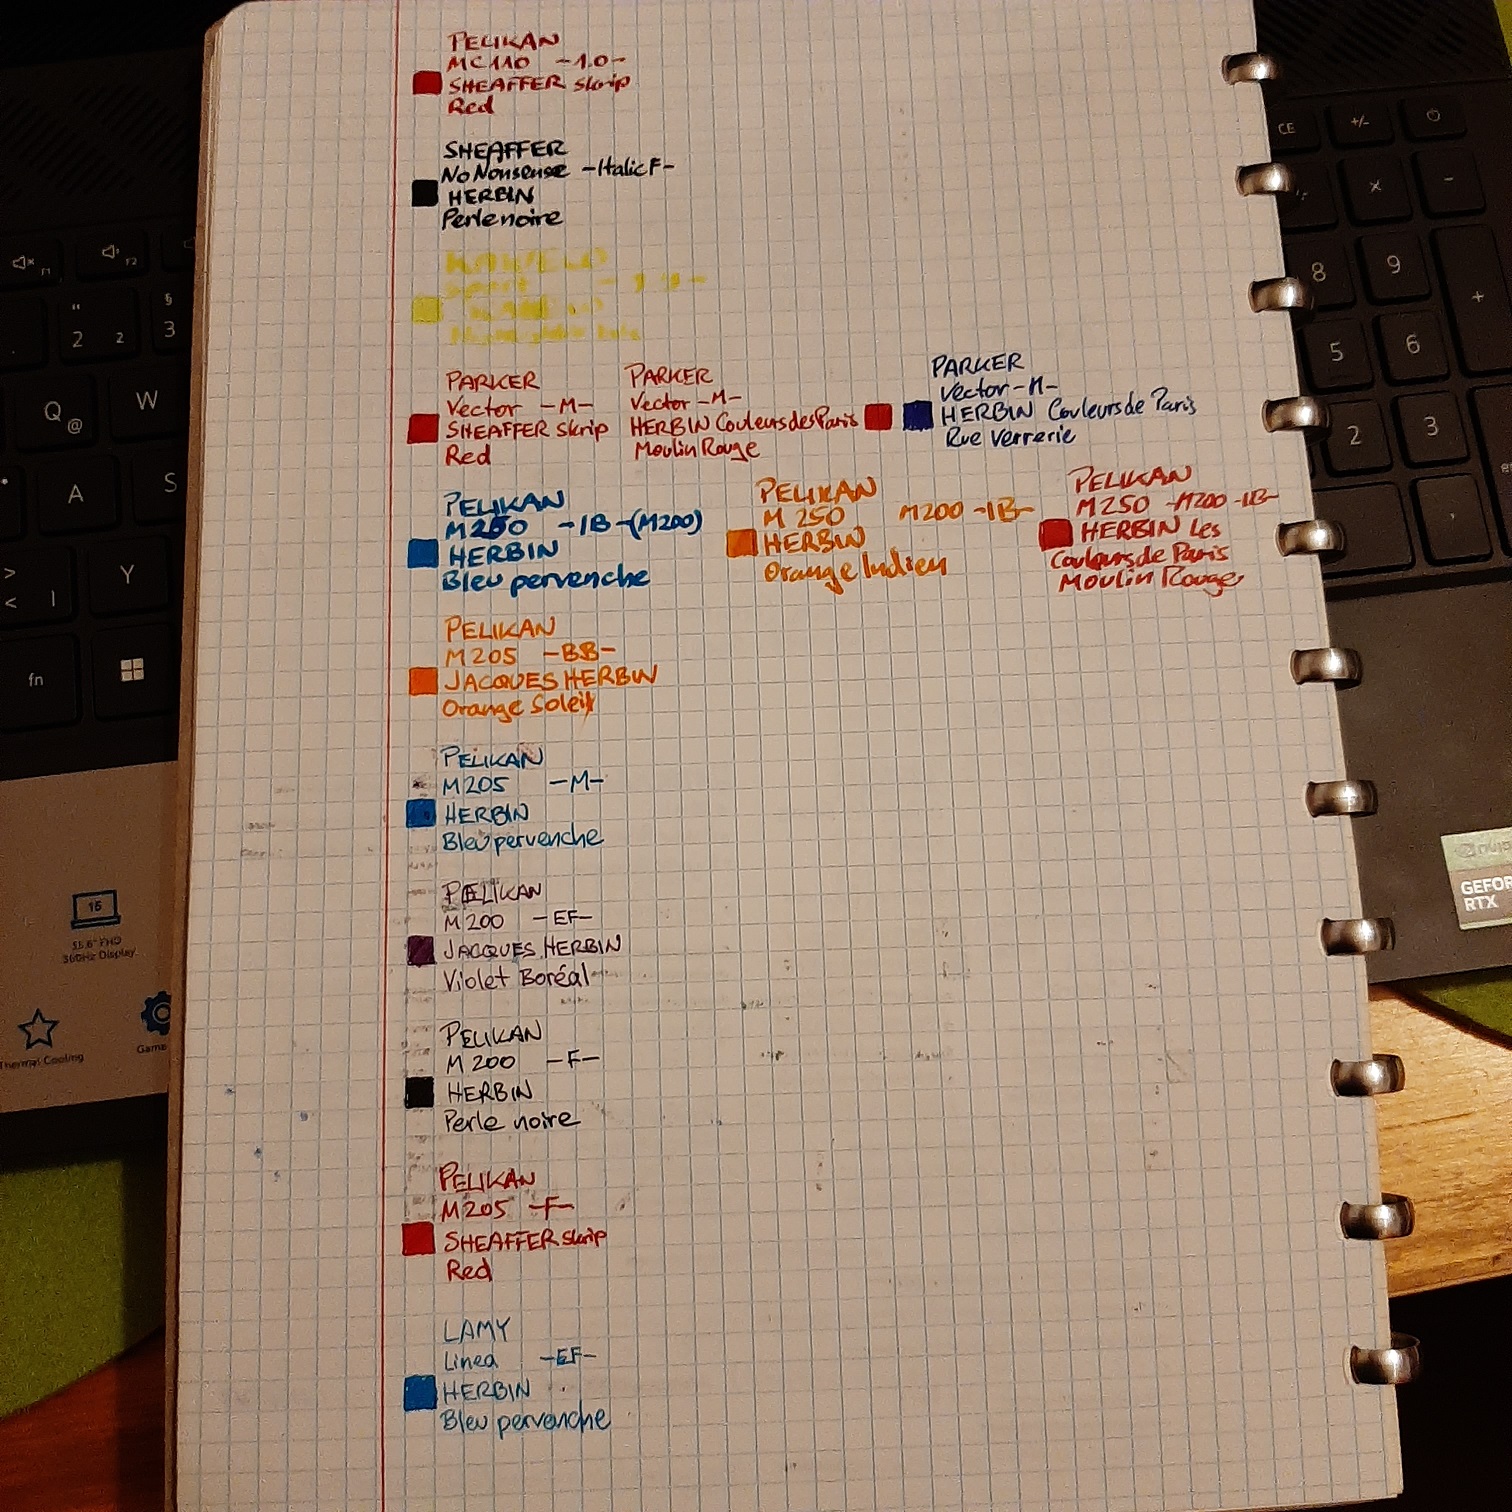 PELIKAN
MC110 -1.0-
SHEAFFER Skrip
Red
SHEAFFER
No Nonsense -Italic F-
HERBIN
Perle noire
KAWECO
Sport
PARKER
Vector -M-
SHEAFFER Skrip
Red
PARKER
Vector -M-
HERBIN Couleurs des Paris
Moulin Rouge
PARKER
Vector -M-
HERBIN Couleurs de Paris
Rue Verrerie
PELIKAN
M250 -IB- (M200)
HERBIN
Bleu pervenche
PELIKAN
M 250 M200 -IB-
HERBIN
Orange Indien
PELIKAN
M 250 -M200 -IB-
HERBIN Les
Couleurs de Paris
Moulin Rouge
PELIKAN
M 205 -BB-
JACQUES HERBIN
Orange Soleil
PELIKAN
M205 -M-
HERBIN
Bleu pervenche
PELIKAN
M 200 -EF-
JACQUES HERBIN
Violet Boréal
PELIKAN
M 200 -F-
HERBIN
Perle noire
PELIKAN
M205 -F-
SHEAFFER Skrip
Red
LAMY
Linea -EF-
HERBIN
Bleu pervenche
F1
F2
" 2 2
§ 3
Q @
W
A
S
Y
> <
fn
16
15.6" FHD
360Hz Display
Thermal Cooling
Game
CE
+/-
×
-
8
9
+
5
6
2
3
,
GEFOR
RTX